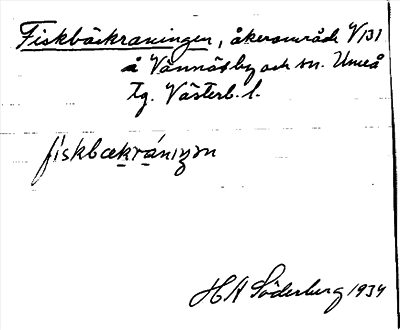 Fiskbäckraningen, åkerområde V131
å Vännäsby och sn. Umeå
tg. Västerb. l.
fiskbækrániŋən
HA Söderberg 1934